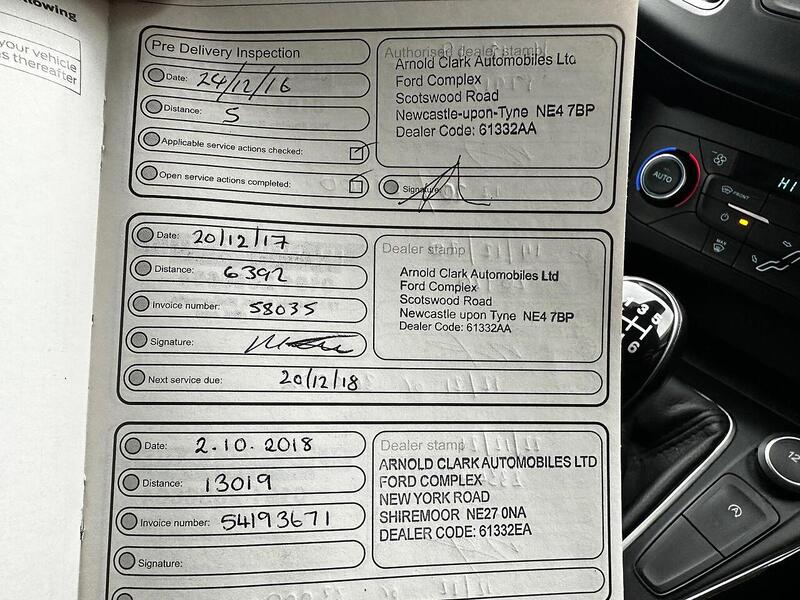 llowing
your vehicle
s thereafter
Pre Delivery Inspection
Date: 24/12/16
Distance: 5
Applicable service actions checked:
Open service actions completed:
Authorised dealer stamp
Arnold Clark Automobiles Ltd
Ford Complex
Scotswood Road
Newcastle-upon-Tyne NE4 7BP
Dealer Code: 61332AA
Signature:
Date: 20/12/17
Distance: 6392
Invoice number: 58035
Signature:
Next service due: 20/12/18
Dealer stamp
Arnold Clark Automobiles Ltd
Ford Complex
Scotswood Road
Newcastle upon Tyne NE4 7BP
Dealer Code: 61332AA
Date: 2.10.2018
Distance: 13019
Invoice number: 54193671
Signature:
Dealer stamp
ARNOLD CLARK AUTOMOBILES LTD
FORD COMPLEX
NEW YORK ROAD
SHIREMOOR NE27 0NA
DEALER CODE: 61332EA
AUTO
FRONT
MAX
HI
3 5
6
12
A